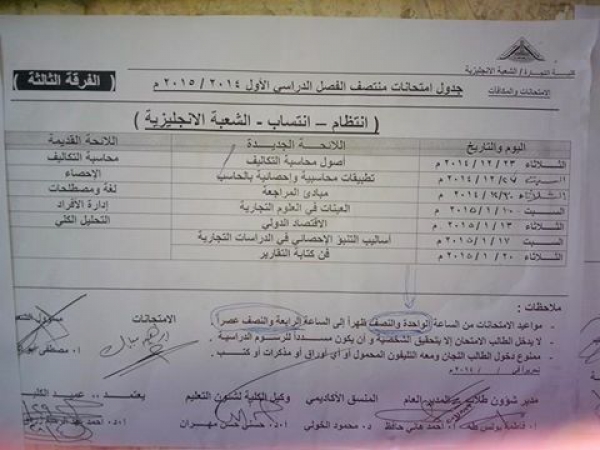 كليـــة التجـــارة / الشعبة الانجليزية
الامتحانات والمكافآت
جدول امتحانات منتصف الفصل الدراسي الأول ٢٠١٤ / ٢٠١٥ م
( الفرقة الثالثة )
( انتظام – انتساب - الشعبة الانجليزية )
اليوم والتاريخ اللائحة الجديدة اللائحة القديمة
الثلاثاء ٢٣ / ١٢ / ٢٠١٤ م أصول محاسبة التكاليف محاسبة التكاليف
السبت ٢٧ / ١٢ / ٢٠١٤ م تطبيقات محاسبية وإحصائية بالحاسب الإحصاء
الثلاثاء ٣٠ / ١٢ / ٢٠١٤ م مبادئ المراجعة لغة ومصطلحات
السبت ١٠ / ١ / ٢٠١٥ م العينات في العلوم التجارية إدارة الأفراد
الثلاثاء ١٣ / ١ / ٢٠١٥ م الاقتصاد الدولي التحليل الكلي
السبت ١٧ / ١ / ٢٠١٥ م أساليب التنبؤ الإحصائي في الدراسات التجارية
الثلاثاء ٢٠ / ١ / ٢٠١٥ م فن كتابة التقارير
ملاحظات :
- مواعيد الامتحانات من الساعة الواحدة والنصف ظهراً إلى الساعة الرابعة والنصف عصراً .
- لا يدخل الطالب الامتحان إلا بتحقيق الشخصية و أن يكون مسدداً للرسوم الدراسية .
- ممنوع دخول الطالب اللجان ومعه التليفون المحمول أو أي أوراق أو مذكرات أو كتب .
تحريراً في / / ٢٠١٤ م
الامتحانات
مدير شؤون طلاب المدير العام المنسق الأكاديمي وكيل الكلية لشئون التعليم يعتمد .. عميد
أ/ فاطمة يونس طه أ/ أحمد هاني حافظ د. محمود الخولي أ.د/ حسني حسن مهران أ.د/ أحمد